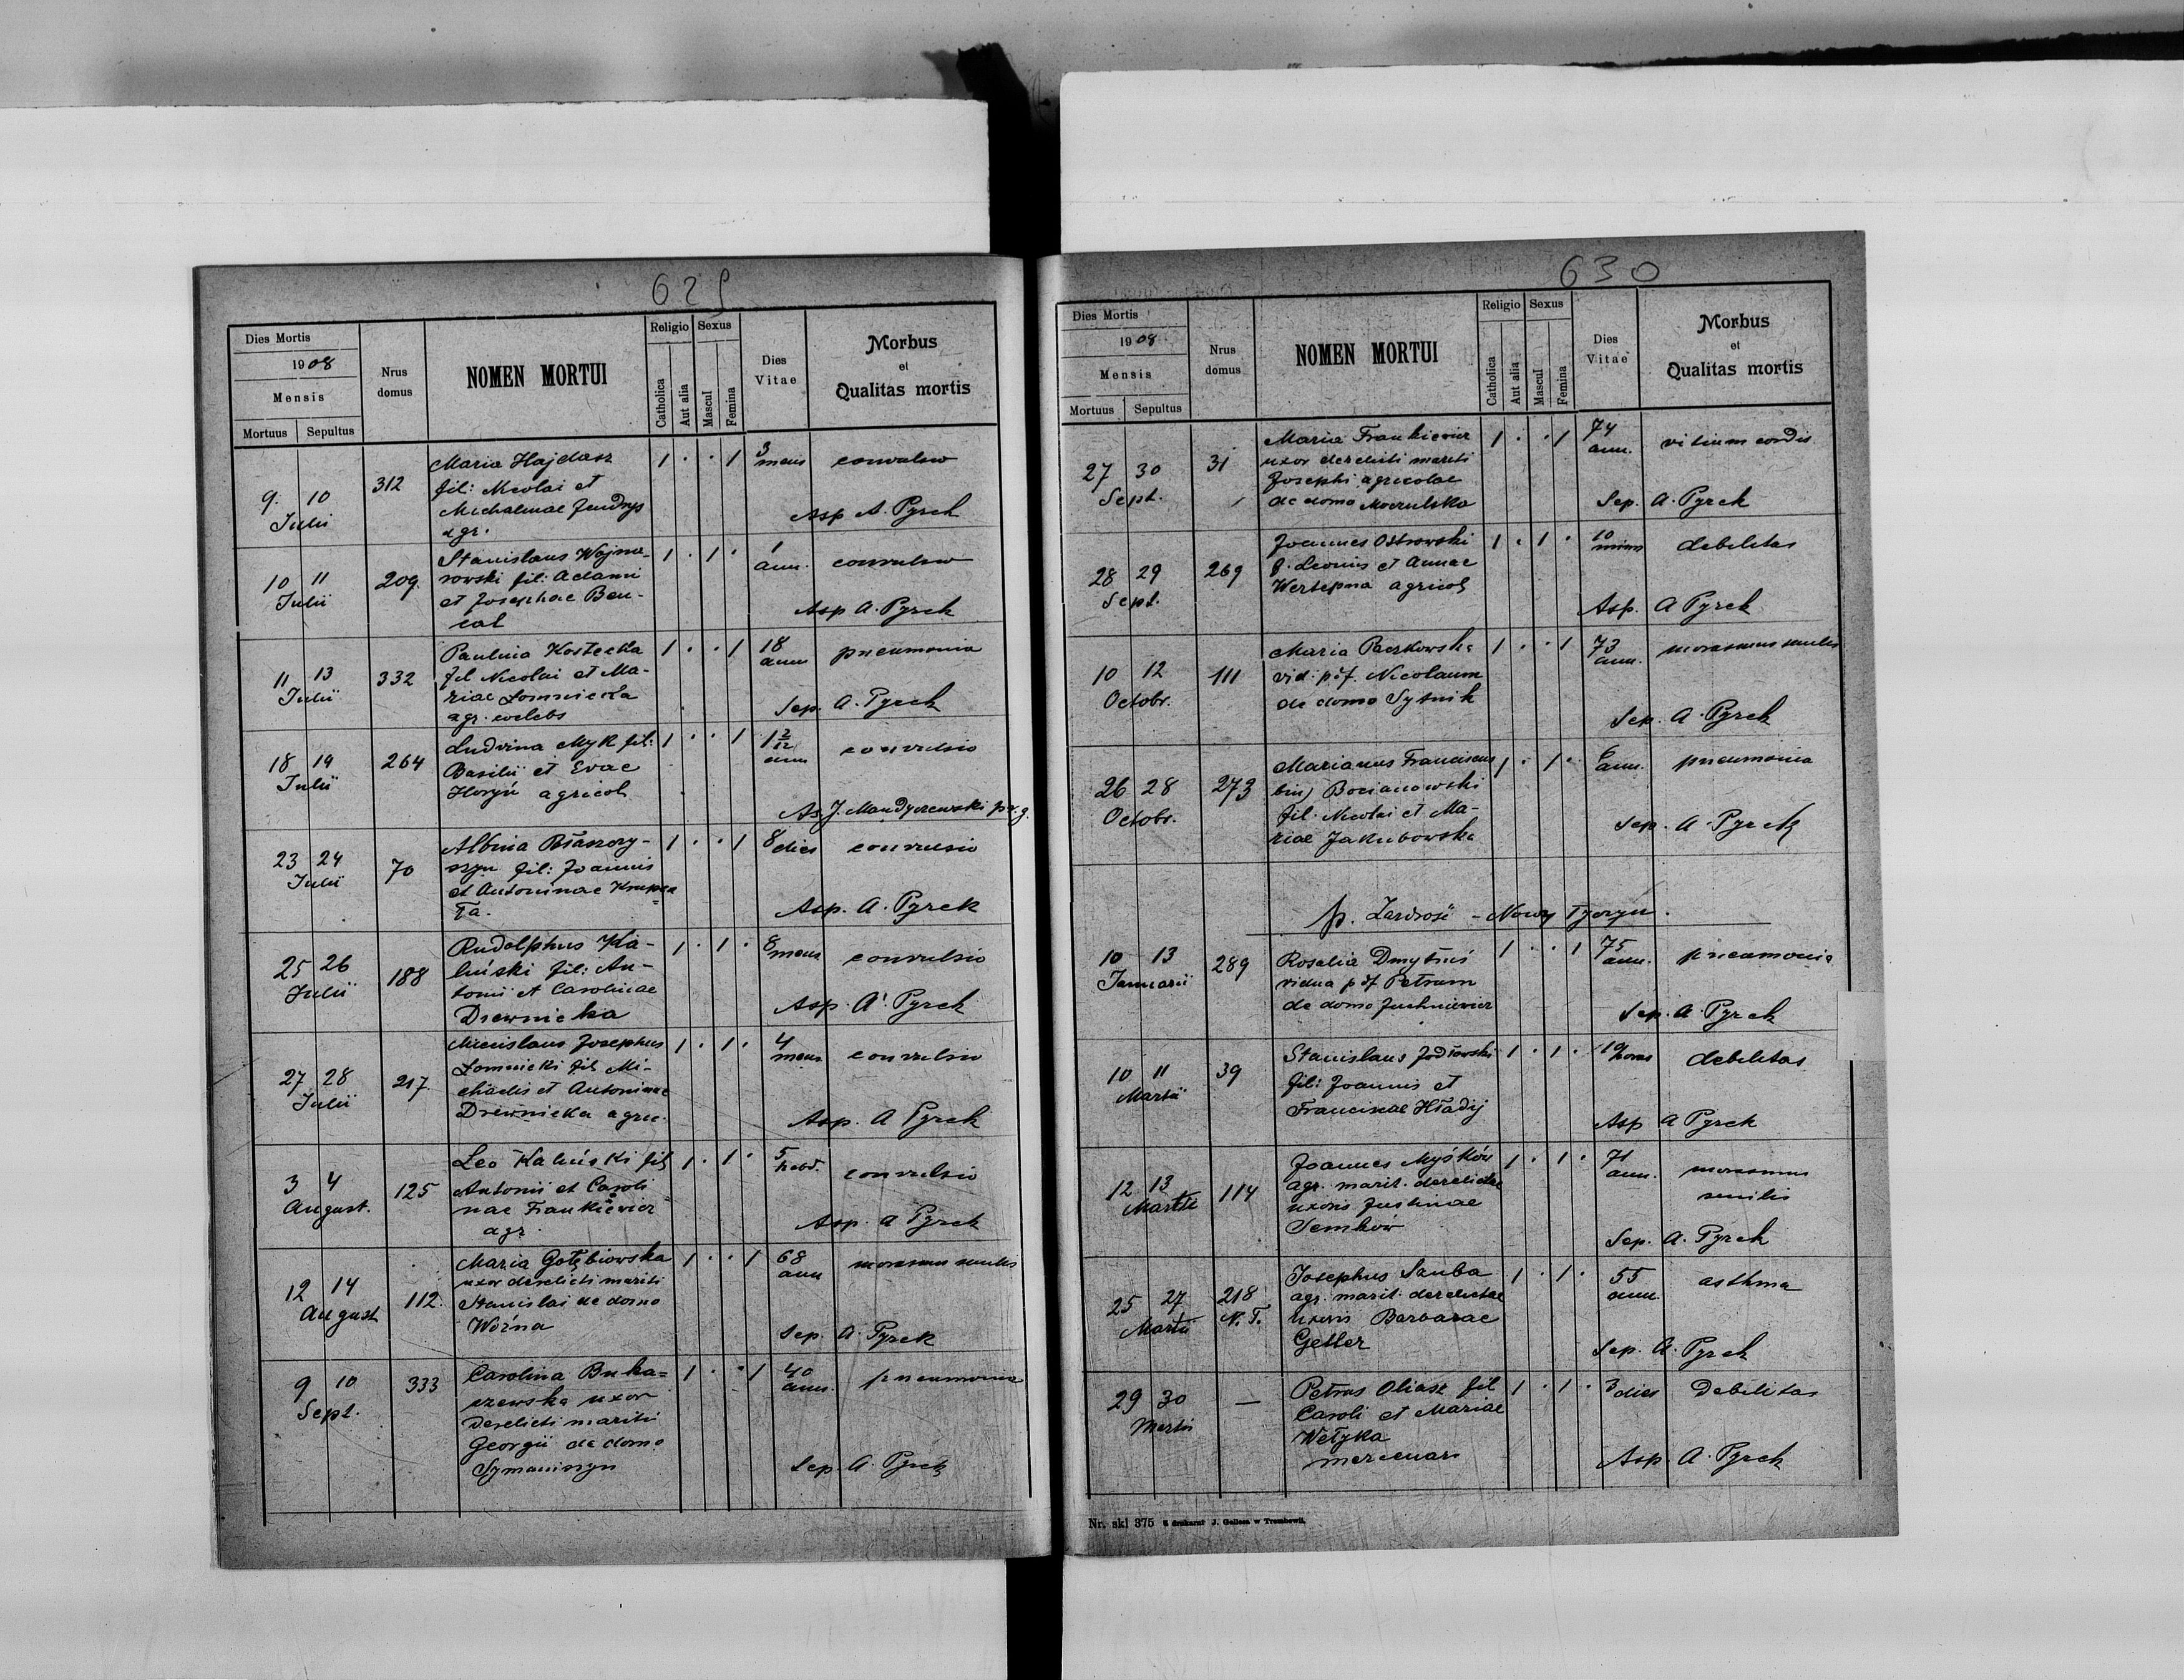 629
Dies Mortis
1908
Mensis
Mortuus Sepultus
Nrus domus
NOMEN MORTUI
Religio
Catholica
Aut alia
Sexus
Mascul
Femina
Dies Vitae
Morbus
et
Qualitas mortis
9. 10 312 Maria Hajdasz 1 . . 1 3 convulsio
Julii fil: Nicolai et mens
Michalinae Jendrys
agr. Asp A. Pyrek
10 11 209. Stanislaus Wojna- 1 . 1 . 1 convulsio
Julii rowski fil. Adami ann.
et Josephae Ben-
cal Asp A. Pyrek
11 13 332 Paulina Kostecka 1 . . 1 18 pneumonia
Julii fil Nicolai et Ma- ann
riae Łomnicka
agr. coelebs Sep. A. Pyrek
18 19 264 Ludvina Myk fil: 1 . . 1 1 2/12 convulsio
Julii Basilii et Evae ann
Horyń agricol
As. J. Mandyczewski pr. g.
23 24 70 Albina Błaszczy- 1 . . 1 8 dies convulsio
Julii szyn fil: Joannis
et Antoninae
ta. Asp. A. Pyrek
25 26 188 Rudolphus Ka- 1 . 1 . 8 convulsio
Julii luński fil: An- mens
tonii et Carolinae
Drewnicka Asp. A. Pyrek
27 28 217. Miecislaus Josephus 1 . 1 . 4 convulsio
Julii Łomnicki fil Mi- mens
chaelis et Antoninae
Drewnicka agric. Asp. A Pyrek
3 4 125 Leo Kaluński fil 1 . 1 . 5 convulsio
August. Antonii et Caroli hebd.
nae Frankiewicz
agr. Asp. A Pyrek
12 14 112. Maria Gołębiowska 1 . . 1 68 marasmus senilis
August uxor derelicti mariti ann
Stanislai de domo
Woźna Sep. A. Pyrek
9 10 333 Carolina Buka- 1 . . 1 40 pneumonia
Sept. czewska uxor ann.
derelicti mariti
Georgii de domo
Symaniszyn Sep. A. Pyrek
630
Dies Mortis
1908
Mensis
Mortuus Sepultus
Nrus domus
NOMEN MORTUI
Religio
Catholica
Aut alia
Sexus
Mascul
Femina
Dies Vitae
Morbus
et
Qualitas mortis
27 30 31 Maria Frankiewicz 1 . . 1 74 vitium cordis
Sept. uxor derelicti mariti ann.
Josephi agricolae
de domo Moczulska Sep. A. Pyrek
28 29 269 Joannes Ostrowski 1 . 1 . 10 debilitas
Sept. f. Leonis et Annae
Wertepna agricol
Asp. A Pyrek
10 12 111 Maria Paczkowska 1 . . 1 73 marasmus senilis
Octobr. vid. p. f. Nicolaum ann.
de domo Sytnik
Sep. A. Pyrek
26 28 273 Marianus Franciscus 1 . 1 . 6 pneumonia
Octobr. bin) Bocianowski ann.
fil. Nicolai et Ma-
riae Jakubowska Sep. A. Pyrek
p. Zazdrość - Nowy Tyczyn.
10 13 289 Rosalia Dmytruś 1 . . 1 75 pneumonia
Januarii vidua p f Petrum ann.
de domo Juchniewicz Sep. A. Pyrek
10 11 39 Stanislaus Jodłowski 1 . 1 . 10 debilitas
Martii fil: Joannis et horas
Franciscae Hładij
Asp A Pyrek
12 13 114 Joannes Myśków 1 . 1 . 71 marasmus
Martii agr. marit. derelictae ann. senilis
uxoris Justinae
Semków Sep. A. Pyrek
25 27 218 Josephus Sauba 1 . 1 . 55 asthma
Martii N. T. agr. marit. derelictae ann.
uxoris Barbarae
Geller Sep. A. Pyrek
29 30 — Petrus Oliasz fil 1 . 1 . 3 dies Debilitas
Martii Caroli et Mariae
Wełyka
mercenar Asp. A. Pyrek
Nr. skl 375 Z drukarni J. Gallesa w Trembowli.